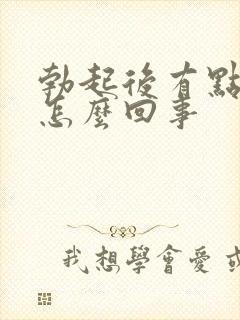 勃起後有點
怎麼回事
我想學會愛